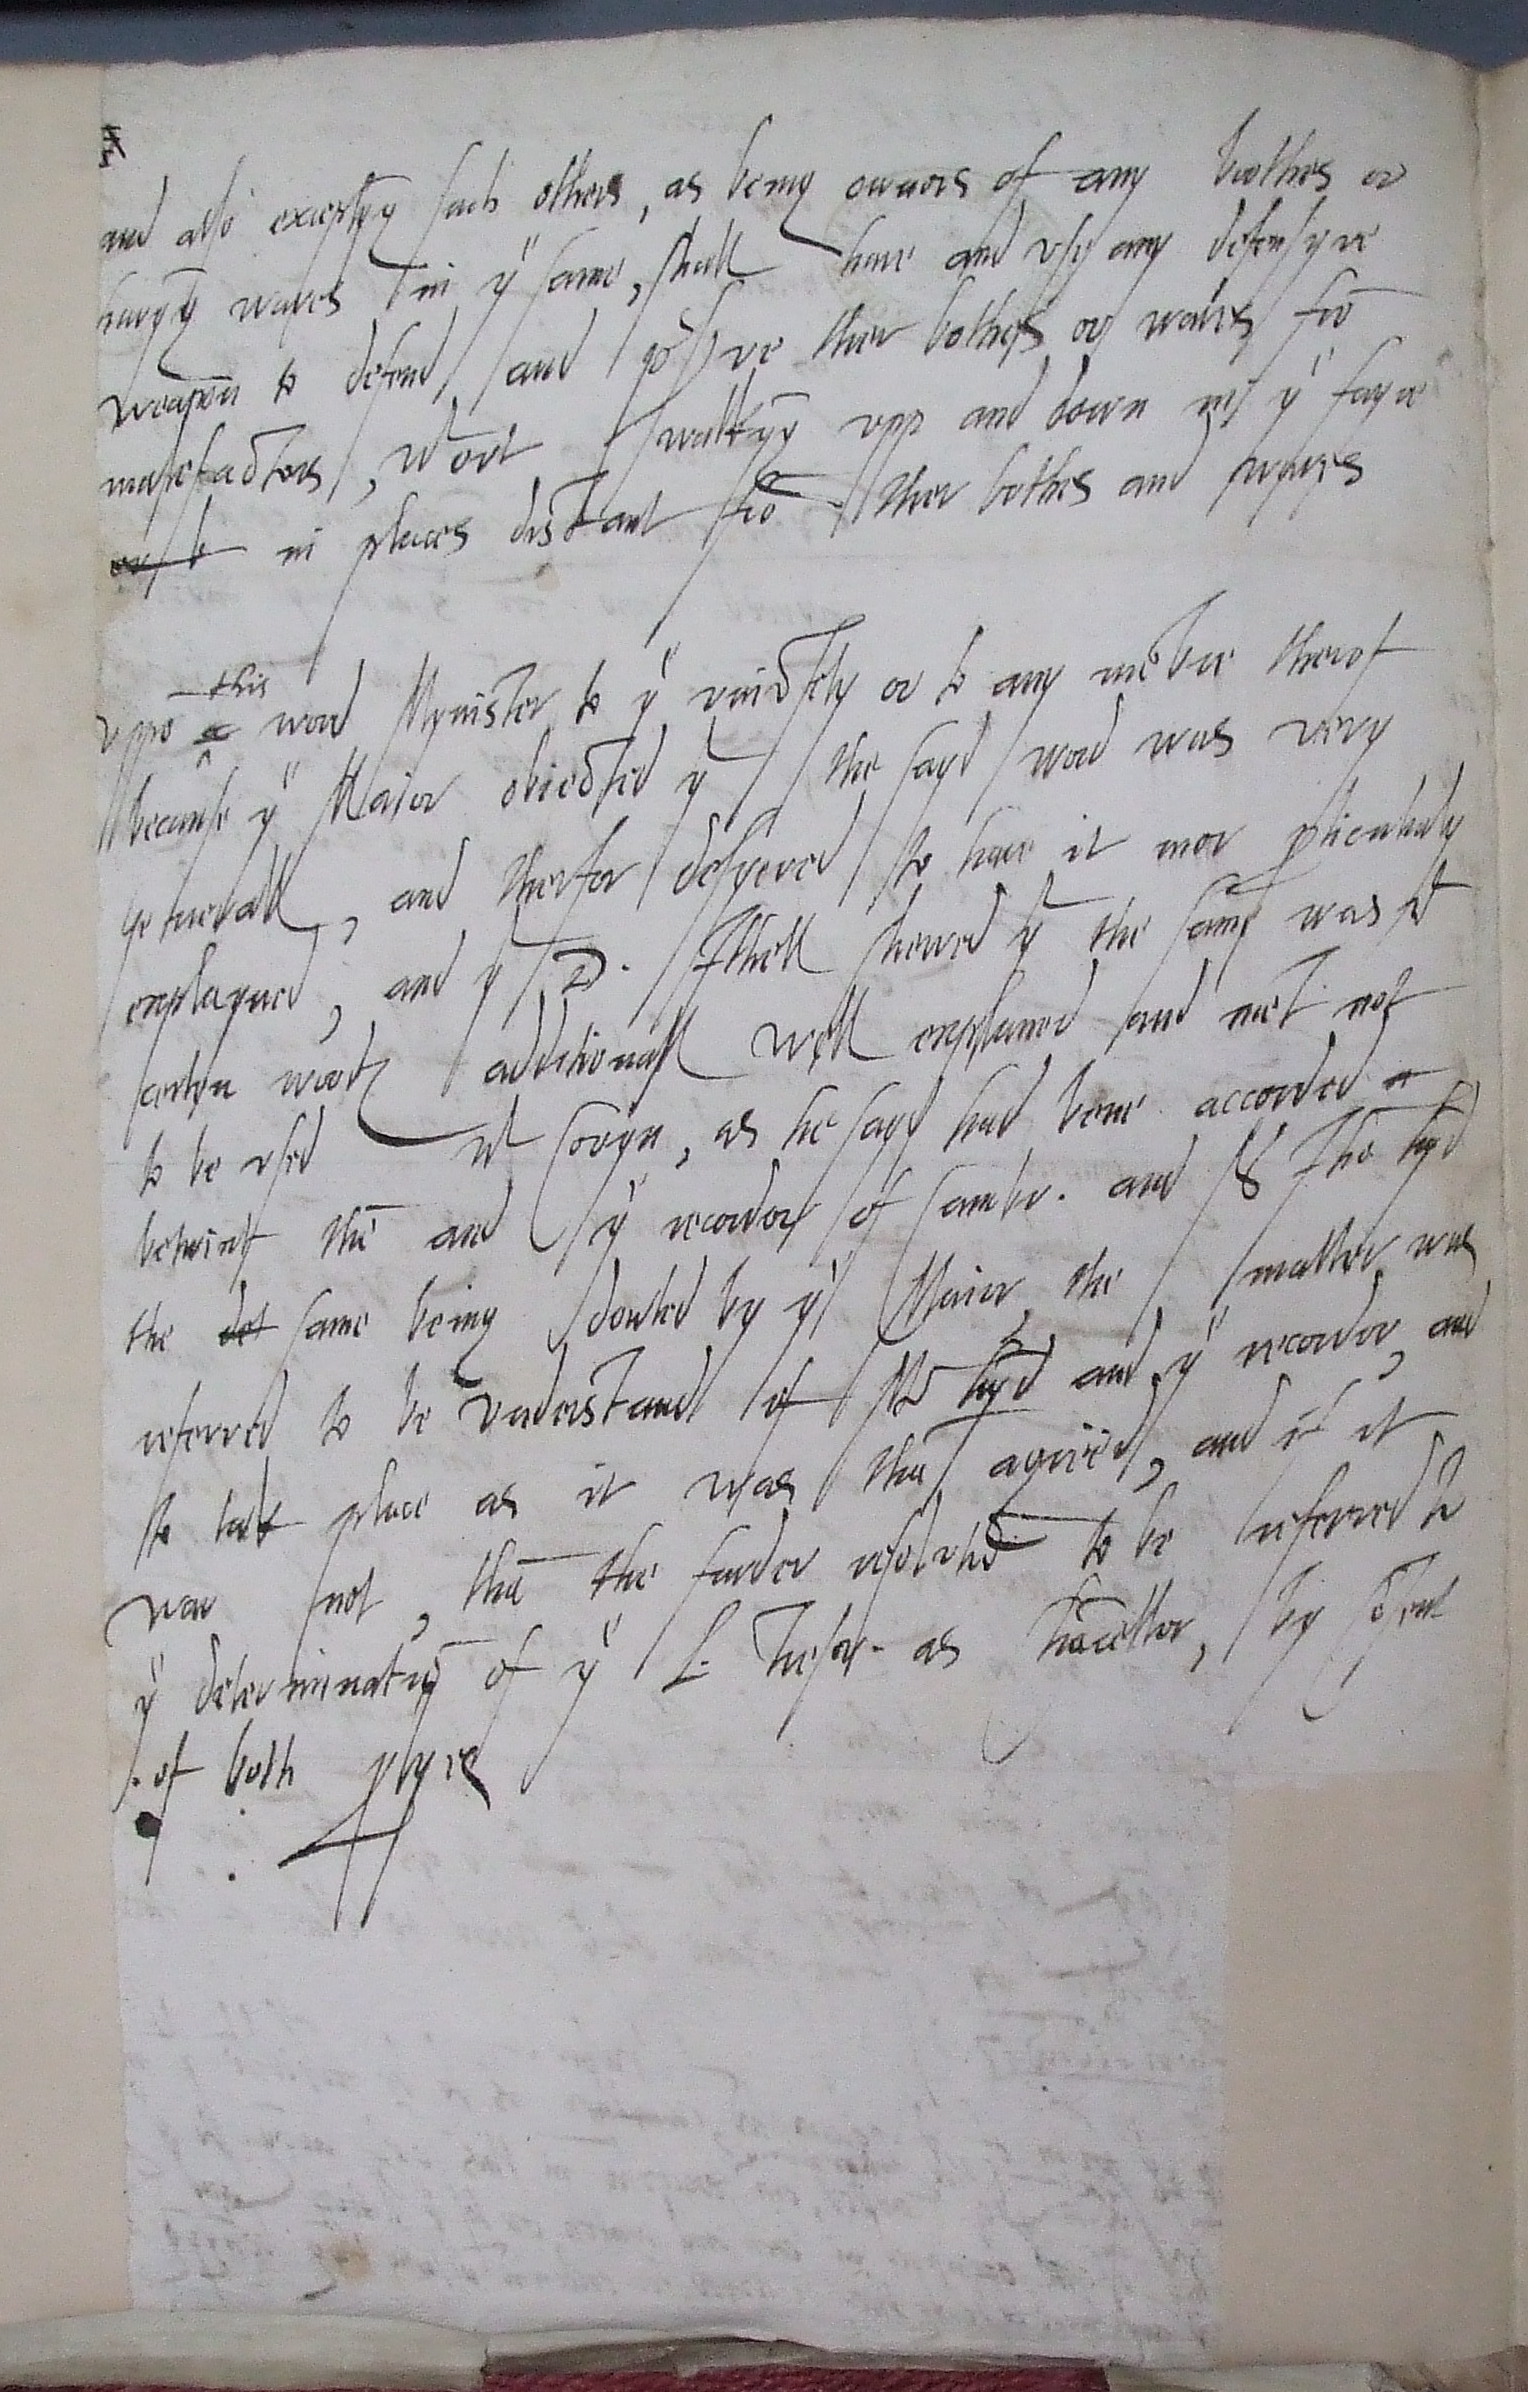 and also exceptyg such others, as being owners of any bothes or
havyg wares in yͤ same, shall have and vse any defensyve
weapon to defend and p̱serve ther bothes or wares frō
malefactors, wᵗout walkyg vpp and down in yͤ fayre
or b in places distant frō ther bothes and wares
vppō a this word Mynister to yͤ vniversity or to any mēbre therof
because yͤ Maior obiected yᵗ the sayd word was very
generall, and therfor desyered to have it mor p̱ticularly
explayned, and yͤ D. Ithell shewed yᵗ the same was wᵗ
certyn words additionall well explaned and mēt not
to be vsed as he sayd had bene accorded
betwixt thē and yͤ recordor of Cambr. and the
the det same being douted by yͤ Maior, the matter was
referred to be vnderstand of and yͤ recordor, and
to take place as it was thē agreed, and if it
war not, thē the farder to be referred to
yͤ determinatiō of yͤ L. Thesor. as Chācellor, by cōsent
of both p̱tyes